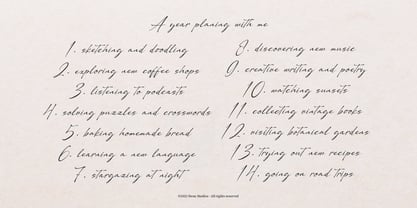 A year planing with me
1. sketching and doodling
2. exploring new coffee shops
3. listening to podcasts
4. solving puzzles and crosswords
5. baking homemade bread
6. learning a new language
7. stargazing at night
8. discovering new music
9. creative writing and poetry
10. watching sunsets
11. collecting vintage books
12. visiting botanical gardens
13. trying out new recipes
14. going on road trips